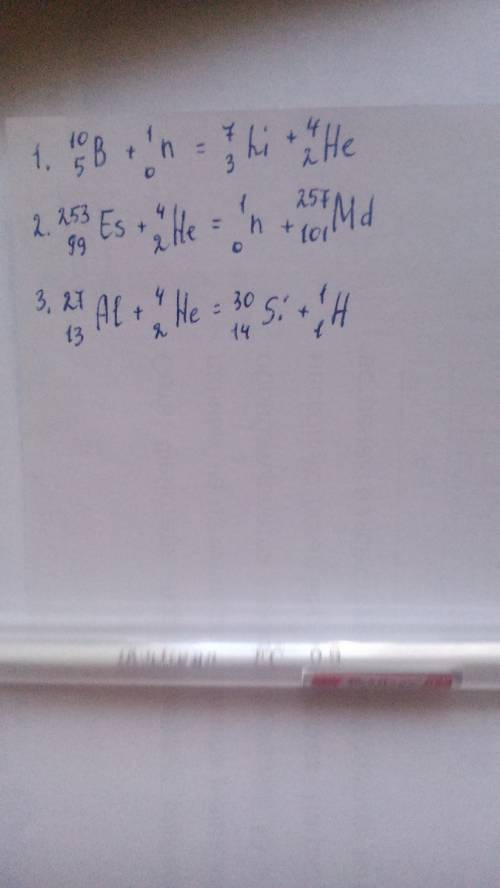 1. ¹⁰₅B + ¹₀n = ⁷₃Li + ⁴₂He
2. ²⁵³₉₉Es + ⁴₂He = ¹₀n + ²⁵⁷₁₀₁Md
3. ²⁷₁₃Al + ⁴₂He = ³⁰₁₄Si + ¹₁H